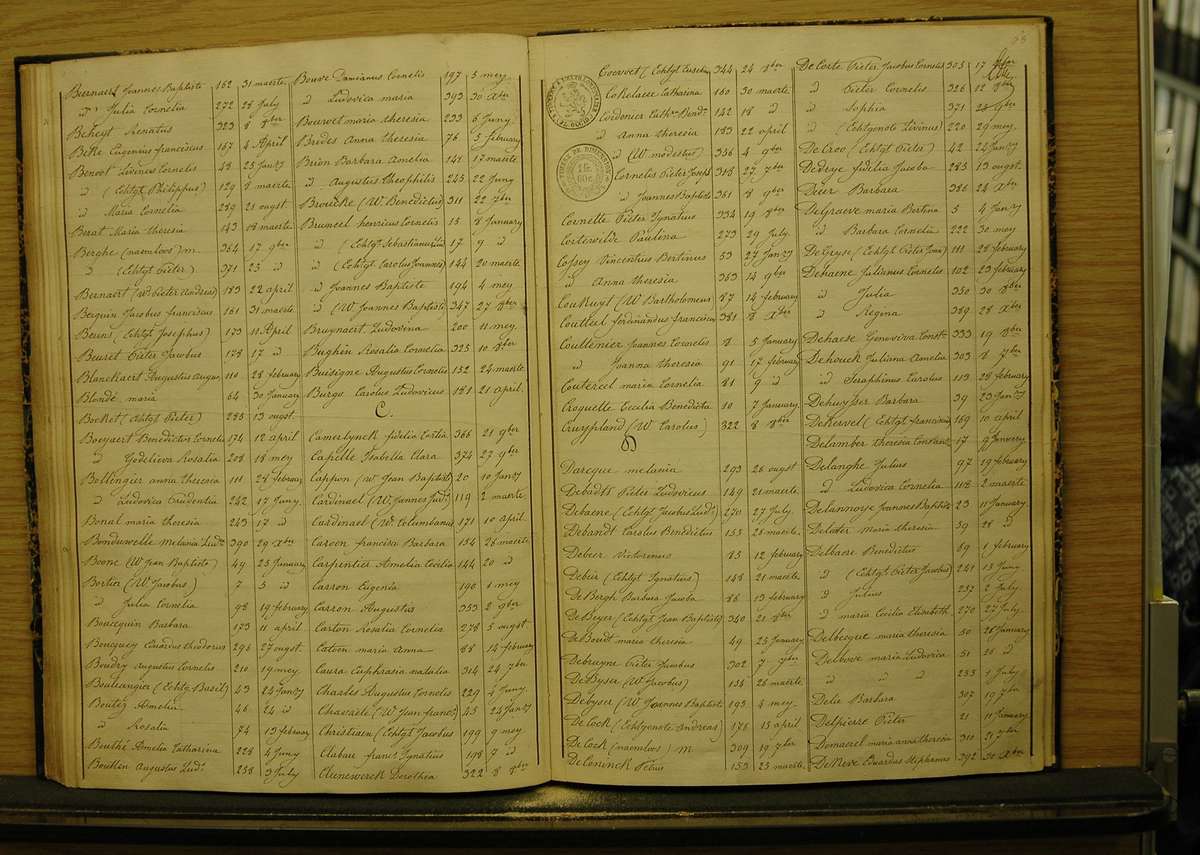 Bernaert Joannes Baptiste 162 31 maerte
d° Julia Cornelia 272 28 July
Beheyt Renatus 323 8 8ber
Beke Eugenius franciscus 167 4 April
Benoot Livinus Cornelis 48 25 Janry
d° (Echtgt Philippus) 129 8 maerte
d° Maria Cornelia 289 21 ougst
Berat Maria theresia 143 18 maerte
Berghe (naemloos) m. 364 17 9ber
d° (Echtgt Pieter) 371 25 d°
Bernaert (W. Pieter Andreas) 183 22 april
Berquin Jacobus franciscus 161 31 maerte
Beuns (Echtgt Josephus) 173 11 April
Beuret Pieter Jacobus 178 17 d°
Blanckaert Augustus 110 28 february
Blonde maria 64 30 January
Boeket (Echtgt Pieter) 285 13 ougst
Boeyaert Benedictus Cornelis 174 12 april
d° Godelieva Rosalia 208 18 mey
Bollengier anna theresia 111 28 february
d° Ludovica Prudentia 242 17 Juny
Bonal maria theresia 243 17 d°
Bonduwelle Melania Ludca 390 29 Xber
Boone (W Jean Baptiste) 49 25 January
Bortier (W Jacobus) 7 5 d°
d° Julia Cornelia 98 19 february
Boucquin Barbara 173 11 april
Bouquey Eduardus theodorus 296 27 ougst
Boudry Augustus Cornelis 210 19 mey
Boulangier (Echtg Basil) 43 24 Janry
Boutez Amelia 46 24 d°
d° Rosalia 74 13 february
Boutké Amelia Catharina 228 4 Juny
Boutten Augustus Ludv 258 3 July
Bouve Damianus Cornelis 197 5 mey
d° Ludovica maria 393 30 Xber
Bouvet maria theresia 233 6 Juny
Brides Anna theresia 76 5 february
Brion Barbara Amelia 141 17 maerte
d° Augustus Theophilis 245 22 Juny
Broucke (W Benedictus) 311 22 7ber
Bruneel henricus Cornelis 15 8 January
d° (Echtgt Sebastianus) 17 9 d°
d° (Echtgt Carolus Joannes) 144 20 maerte
d° Joannes Baptiste 194 4 mey
d° (W Joannes Baptiste) 347 27 8ber
Bruynaert Ludovina 200 11 mey
Bughin Rosalia Cornelia 325 10 8ber
Buisigne Augustus Cornelis 152 24 maerte
Burgo Carolus Ludovicus 181 21 april
C.
Camerlynck fidelia 366 21 9ber
Capelle Isabella Clara 374 27 9ber
Cappon (W. Jean Baptiste) 20 10 Janry
Cardinael (W Joannes Jud) 119 2 maerte
Cardinael (W Columbanus) 171 10 april
Caroen francisca Barbara 154 28 maerte
Carpentier Amelia Cecilia 144 20 d°
Carron Eugenia 190 1 mey
Carron Augustis 353 2 9ber
Carton Rosalia Cornelia 278 5 ougst
Catoen maria Anna 88 14 february
Caura Euphrasia natalia 314 24 7ber
Charles Augustus Cornelis 229 4 Juny
Chavaete (W Jean franc) 45 24 Janry
Christiaen (Echtgt Jacobus) 199 9 mey
Clabau francs Ignatius 198 7 d°
Cleenewerck Dorothea 322 8 8ber
Coevoet (Echtgt Eusebius) 344 24 8ber
CoKelaere Catharina 160 30 maerte
Coidonies Cathr Bendt 142 18 d°
d° Anna theresia 183 22 april
d° (W modestus) 356 4 9ber
Cornelis Pieter Joseph 318 27 7ber
d° Joannes Baptiste 361 8 9ber
Cornette Pieter Ignatius 334 19 8ber
Cortewilde Paulina 273 29 July
Cossey Vincentius Bertinus 53 27 Janry
d° Anna theresia 363 14 9ber
CouKuyt (W Bartholomeus 87 14 february
Coutteel ferdinandus francisca 381 8 Xber
Couttenier Joannes Cornelis 8 5 January
d° Joanna theresia 91 17 february
Coutereel maria Cornelia 81 9 d°
Craquette Cecilia Benedicta 10 7 January
Cruypland (W Carolus) 322 8 8ber
D
Darcque melania 293 26 ougst
Debadts Pieter Ludovicus 149 21 maerte
Debaene (Echtgt Jacobus Lud) 270 27 July
Debandt Carolus Benedictus 155 28 maerte
Debeer Victorinus 85 12 february
Debeir (Echtgt Ignatius) 148 21 maerte
De Bergh Barbara Jacoba 86 13 february
De Beyer (Echtgt Jean Baptiste) 340 21 8ber
De Boudt maria theresia 49 25 January
Debruyne Pieter Jacobus 302 7 7ber
De Byser (W Jacobus) 154 26 maerte
Debyser (W Joannes Baptiste 193 4 mey
De Cock (Echtgenote Andreas) 176 13 april
De Cock (naemloos) M 309 19 7ber
De Coninck Petrus 153 25 maerte
De Corte Pieter Jacobus Cornelis 305 17
d° Pieter Cornelis 326 12 8ber
d° Sophia 371 25 9ber
d° (Echtgenote Livinus) 220 29 mey
De Croo (Echtgt Pieter) 42 24 Janry
Dedrye fidelia Jacoba 285 13 ougst
Deeer Barbara 386 24 Xber
DeGraeve maria Bertina 5 4 Janry
d° Barbara Cornelia 222 30 mey
De Gryse (Echtgt Pieter Joan) 111 28 february
Dehaene Julianus Cornelis 102 23 february
d° Julia 350 30 8ber
d° Regina 389 28 Xber
Dehaese Genoveva Const 333 19 8ber
Dehouck Juliana Amelia 303 8 7ber
d° Seraphinus Carolus 113 28 february
Dehuysser Barbara 39 23 Janry
DeKervel (Echtgt francisca) 169 10 april
Delamber theresia Constant 17 9 January
Delanghe Julius 97 19 february
d° Ludovica Cornelia 118 2 maerte
Delannoye Joannes Baptiste 23 11 January
Delater maria theresia 59 28 d°
Delbaere Benedictus 69 1 february
d° (Echtgt Pieter Jacobus) 241 15 Juny
d° Julius 257 2 July
d° maria Cecilia Elisabeth 270 27 July
Delbecque maria theresia 50 26 January
Delbove maria Ludovica 51 26 d°
d° d° d° 255 1 July
Delie Barbara 307 19 7ber
Delpierre Pieter 21 11 January
Demaecel maria anna theresia 310 21 7ber
De Neve Eduardus Stephanus 392 30 Xber